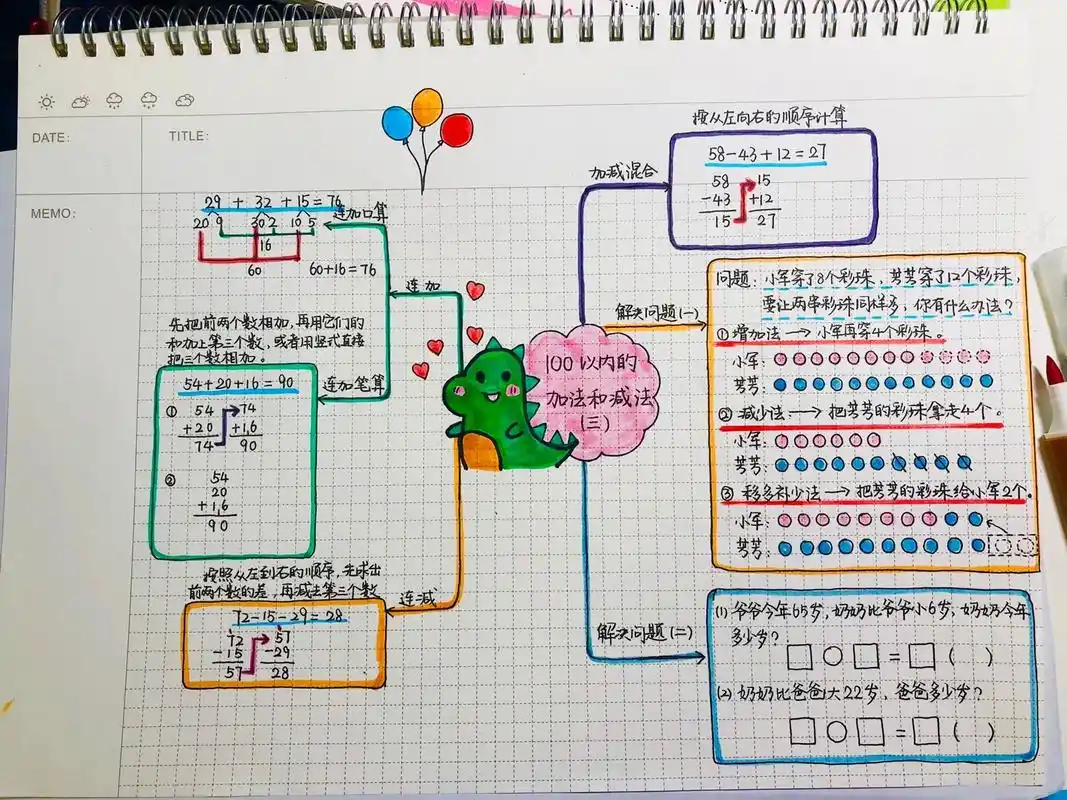 DATE:
TITLE:
MEMO:
100以内的
加法和减法
(三)
连加
连加口算
29 + 32 + 15 = 76
20 9 30 2 10 5
16
60
60+16=76
连加笔算
先把前两个数相加,再用它们的
和加上第三个数,或者用竖式直接
把三个数相加。
54+20+16=90
①
54 74
+20 +1,6
74 90
②
54
20
+1,6
90
连减
按照从左到右的顺序,先求出
前两个数的差,再减去第三个数
72-15-29=28
72 57
-15 -29
57 28
加减混合
按从左向右的顺序计算
58-43+12=27
58 15
-43 +12
15 27
解决问题(一)
问题:小军穿了8个彩珠,芳芳穿了12个彩珠,
要让两串彩珠同样多,你有什么办法?
①增加法→小军再穿4个彩珠。
小军:
芳芳:
②减少法→把芳芳的彩珠拿走4个。
小军:
芳芳:
③移多补少法→把芳芳的彩珠给小军2个。
小军:
芳芳:
解决问题(二)
(1)爷爷今年65岁,奶奶比爷爷小6岁,奶奶今年
多少岁?
□○□=□( )
(2)奶奶比爸爸大22岁,爸爸多少岁?
□○□=□( )